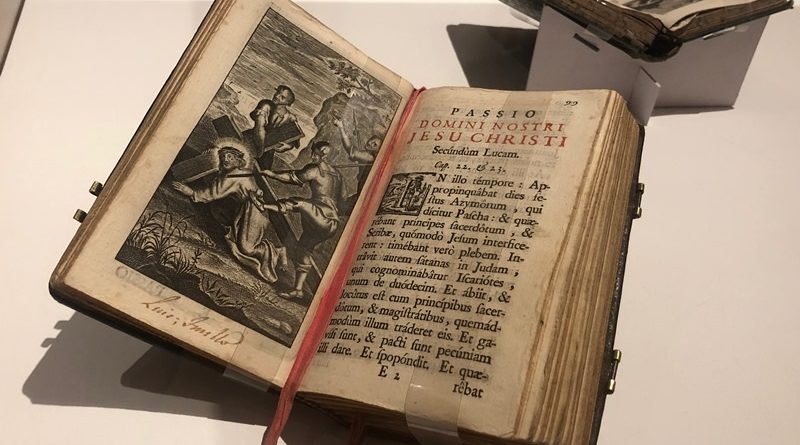 99
PASSIO
DOMINI NOSTRI
JESU CHRISTI
Secúndùm Lucam.
Cap. 22. & 23.
IN illo témpore : Ap-
propinquâbat dies fe-
ſtus Azymôrum , qui
dícitur Paſcha : & quæ-
rêbant príncipes ſacerdôtum , &
Scribæ, quómodò Jeſum interfíce-
rent : timêbant verò plebem. In-
trâvit autem ſatanas in Judam ,
qui cognominâbâtur Iſcariótes ,
unum de duódecim. Et ábiit, &
locûtus eſt cum princípibus ſacer-
dôtum, & magiſtrátibus, quemád-
modùm illum tráderet eis. Et ga-
viſi ſunt, & pacti ſunt pecúniam
illi dare. Et ſpopóndit. Et quæ-
E 2
rêbat